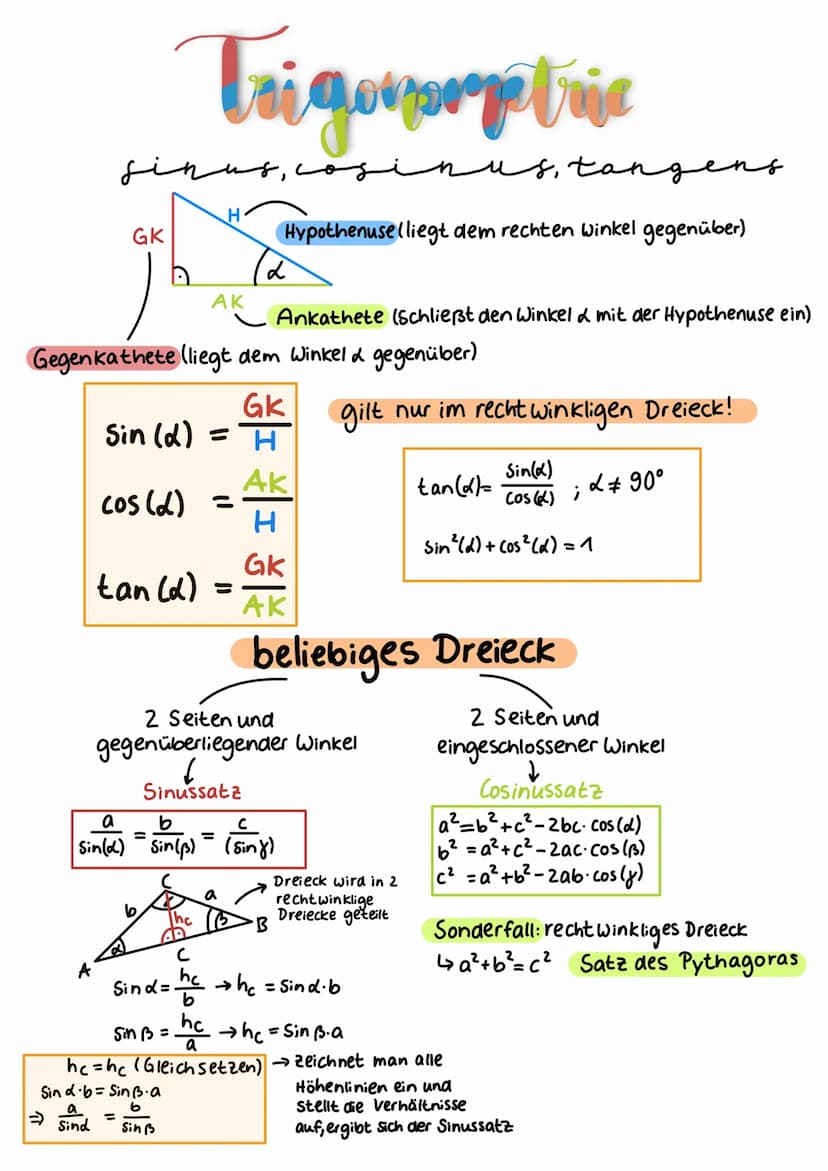 Trigonometrie
sinus, cosinus, tangens
H
GK
Hypothenuse (liegt dem rechten Winkel gegenüber)
α
AK
Ankathete (schließt den Winkel α mit der Hypothenuse ein)
Gegenkathete (liegt dem Winkel α gegenüber)
sin(α) = GK/H
cos(α) = AK/H
tan(α) = GK/AK
gilt nur im rechtwinkligen Dreieck!
tan(α)= sin(α)/cos(α) ; α ≠ 90°
sin²(α) + cos²(α) = 1
beliebiges Dreieck
2 Seiten und
gegenüberliegender Winkel
Sinussatz
a/sin(α) = b/sin(β) = c/(sinγ)
C
a
b
hc
β
B
α
A
C
Dreieck wird in 2
rechtwinklige
Dreiecke geteilt
sin α = hc/b → hc = sin α · b
sin β = hc/a → hc = sin β · a
hc = hc (Gleichsetzen)
sin α · b = sin β · a
⇒ a/sin α = b/sin β
→ zeichnet man alle
Höhenlinien ein und
stellt die Verhältnisse
auf, ergibt sich der Sinussatz
2 Seiten und
eingeschlossener Winkel
Cosinussatz
a² = b² + c² - 2bc · cos(α)
b² = a² + c² - 2ac · cos(β)
c² = a² + b² - 2ab · cos(γ)
Sonderfall: rechtwinkliges Dreieck
↳ a² + b² = c² Satz des Pythagoras